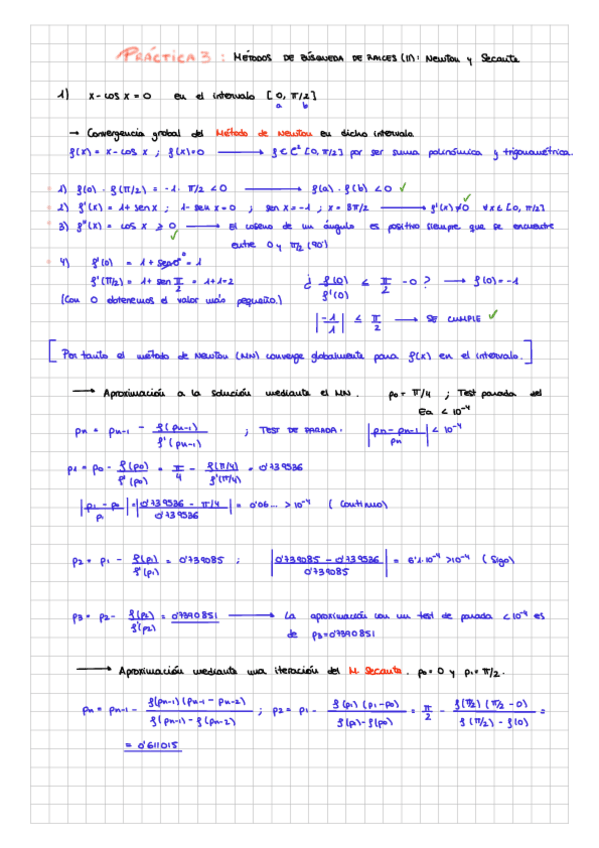 PRÁCTICA 3 : MÉTODOS DE BÚSQUEDA DE RAÍCES (II): Newton y Secante
1) x - cos x = 0 en el intervalo [0, π/2]
a b
→ Convergencia grobal del Método de Newton en dicho intervalo.
f(x) = x - cos x ; f(x)=0 → f ∈ C² [0, π/2] por ser suma polinómica y trigonométrica.
1) f(0) · f(π/2) = -1 · π/2 < 0 → f(a) · f(b) < 0 ✓
2) f'(x) = 1 + sen x ; 1 - sen x = 0 ; sen x = -1 ; x = 3π/2 → f'(x) ≠ 0 ∀x ∈ [0, π/2] ✓
3) f''(x) = cos x ≥ 0 → El coseno de un ángulo es positivo siempre que se encuentre
✓ entre 0 y π/2 (90°)
4) f'(0) = 1 + sen 0° = 1
f'(π/2) = 1 + sen π/2 = 1+1=2 ¿ f(0)/f'(0) ≤ π/2 - 0 ? → f(0) = -1
(Con 0 obtenemos el valor más pequeño.) |-1/1| ≤ π/2 → SE CUMPLE ✓
[ Por tanto el método de Newton (MN) converge globalmente para f(x) en el intervalo. ]
→ Aproximación a la solución mediante el MN. p0 = π/4 ; Test parada del
Ea < 10⁻⁴
pn = pn-1 - f(pn-1)/f'(pn-1) ; TEST DE PARADA. |pn - pn-1/pn| < 10⁻⁴
p1 = p0 - f(p0)/f'(p0) = π/4 - f(π/4)/f'(π/4) = 0'739536
|p1 - p0/p1| = |0'739536 - π/4/0'739536| = 0'06... > 10⁻⁴ (Continuo)
p2 = p1 - f(p1)/f'(p1) = 0'739085 ; |0'739085 - 0'739536/0'739085| = 6'1·10⁻⁴ > 10⁻⁴ (Sigo)
p3 = p2 - f(p2)/f'(p2) = 0'7390851 → La aproximación con un test de parada < 10⁻⁴ es
de p3=0'7390851
→ Aproximación mediante una iteración del M. Secante. p0 = 0 y p1 = π/2.
pn = pn-1 - f(pn-1)(pn-1 - pn-2)/f(pn-1) - f(pn-2) ; p2 = p1 - f(p1)(p1-p0)/f(p1)-f(p0) = π/2 - f(π/2)(π/2 - 0)/f(π/2) - f(0) =
= 0'611015